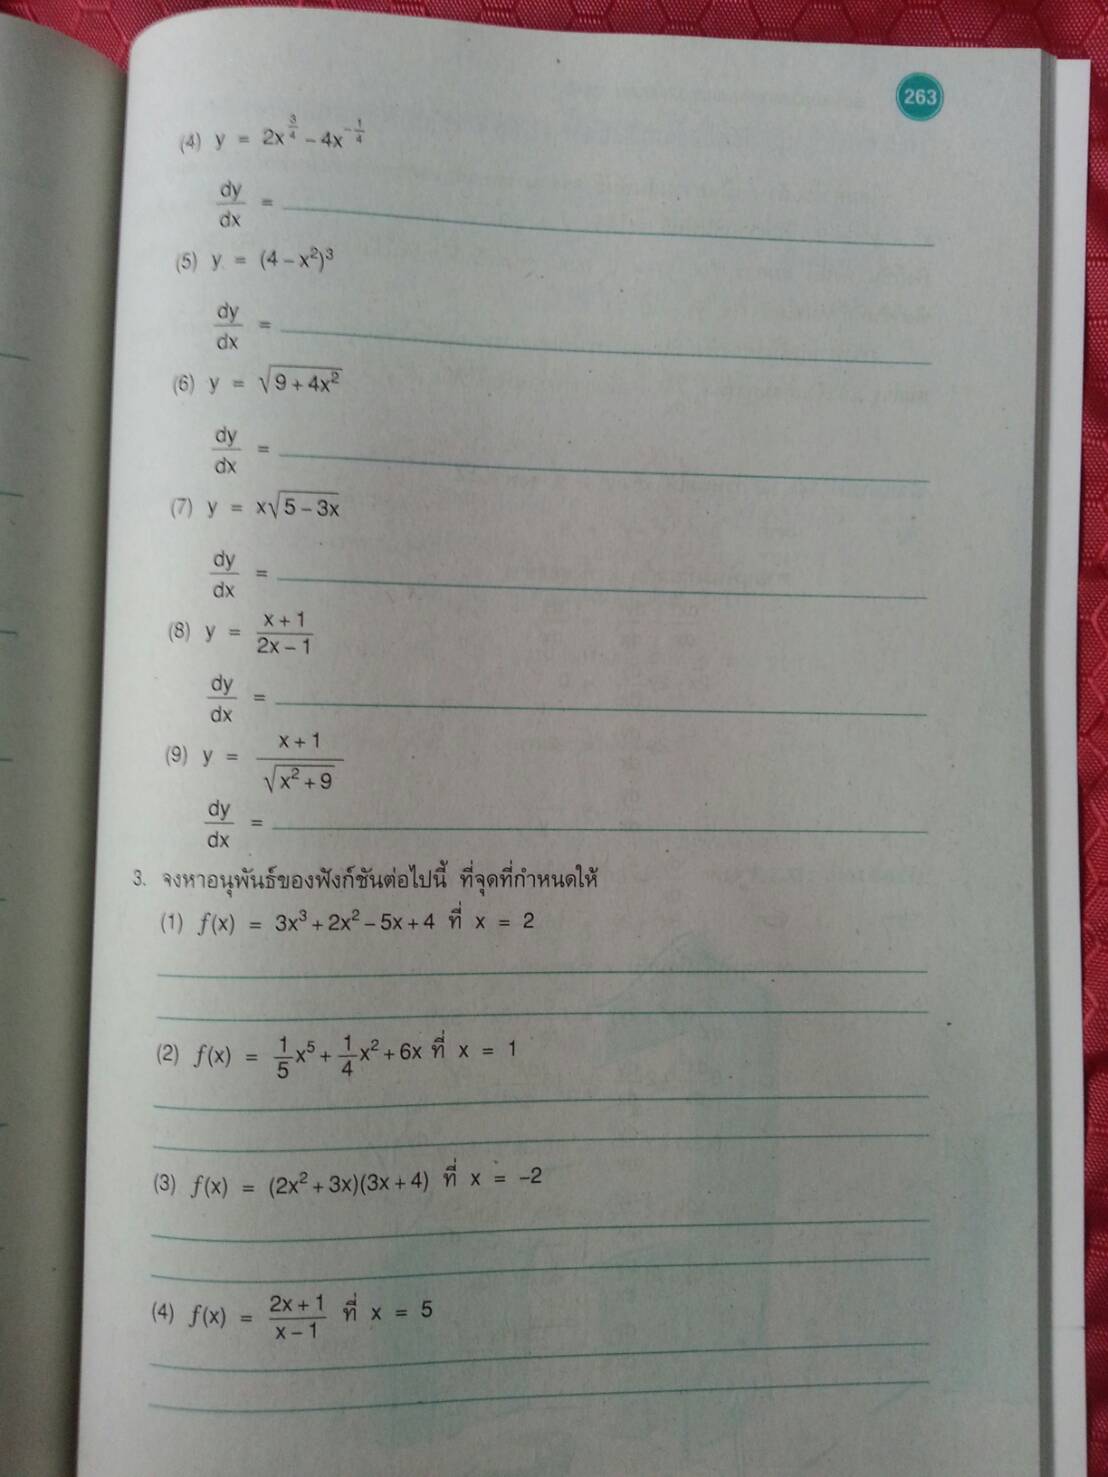 263
(4) y = 2x^{3/4} – 4x^{–1/4}
dy/dx =
(5) y = (4 – x²)³
dy/dx =
(6) y = √(9 + 4x²)
dy/dx =
(7) y = x√(5 – 3x)
dy/dx =
(8) y = (x + 1)/(2x – 1)
dy/dx =
(9) y = (x + 1)/√(x² + 9)
dy/dx =
3. จงหาอนุพันธ์ของฟังก์ชันต่อไปนี้ ที่จุดที่กำหนดให้
(1) f(x) = 3x³ + 2x² – 5x + 4 ที่ x = 2
(2) f(x) = 1/5 x⁵ + 1/4 x² + 6x ที่ x = 1
(3) f(x) = (2x² + 3x)(3x + 4) ที่ x = –2
(4) f(x) = (2x + 1)/(x – 1) ที่ x = 5